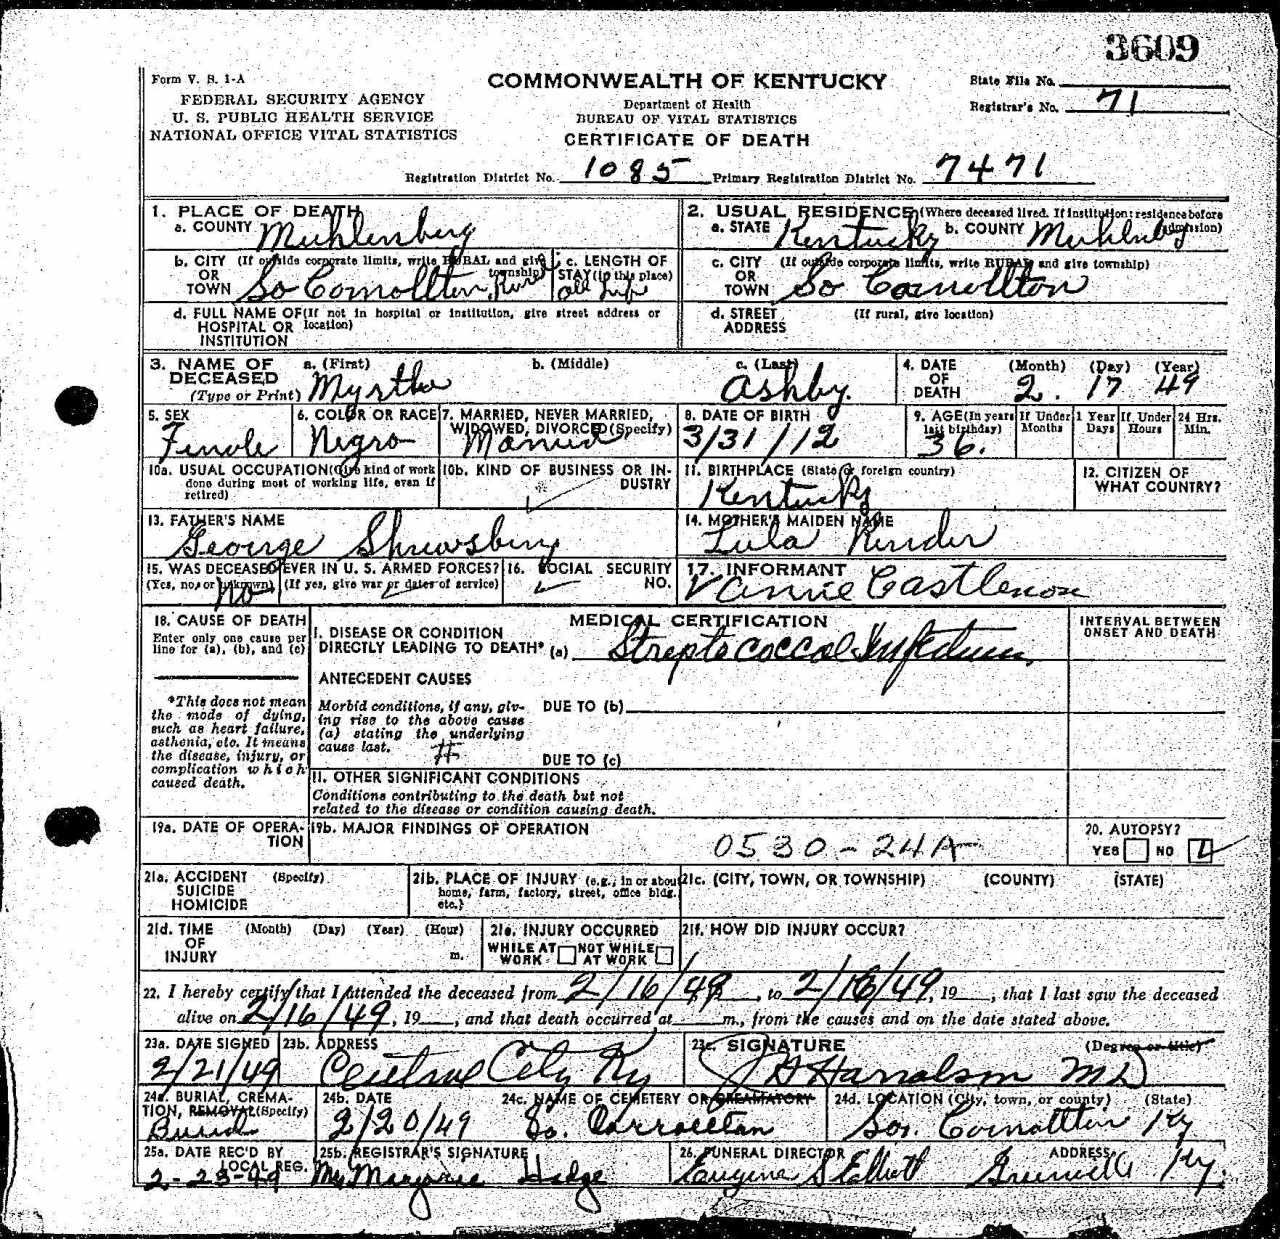 3609
Form V. S. 1-A
COMMONWEALTH OF KENTUCKY
State File No.
FEDERAL SECURITY AGENCY
Department of Health
Registrar's No. 71
U. S. PUBLIC HEALTH SERVICE
BUREAU OF VITAL STATISTICS
NATIONAL OFFICE VITAL STATISTICS
CERTIFICATE OF DEATH
Registration District No. 1085 Primary Registration District No. 7471
1. PLACE OF DEATH
a. COUNTY Muhlenberg
2. USUAL RESIDENCE (Where deceased lived. If institution: residence before admission)
a. STATE Kentucky b. COUNTY
b. CITY (If outside corporate limits, write RURAL and give township)
OR
TOWN So
c. LENGTH OF
STAY (in this place)
All Life
c. CITY (If outside corporate limits, write RURAL and give township)
OR
TOWN So
d. FULL NAME OF (If not in hospital or institution, give street address or
HOSPITAL OR location)
INSTITUTION
d. STREET (If rural, give location)
ADDRESS
3. NAME OF a. (First) b. (Middle) c. (Last)
DECEASED
(Type or Print) Ashby.
4. DATE (Month) (Day) (Year)
OF
DEATH 2. 17 49
5. SEX
Female
6. COLOR OR RACE
Negro
7. MARRIED, NEVER MARRIED,
WIDOWED, DIVORCED (Specify)
Married
8. DATE OF BIRTH
3/31/12
9. AGE (In years
last birthday)
36.
If Under 1 Year
Months Days
If Under 24 Hrs.
Hours Min.
10a. USUAL OCCUPATION (Give kind of work
done during most of working life, even if
retired)
10b. KIND OF BUSINESS OR IN-
DUSTRY
11. BIRTHPLACE (State or foreign country)
Kentucky
12. CITIZEN OF
WHAT COUNTRY?
13. FATHER'S NAME
George Shrewsbery
14. MOTHER'S MAIDEN NAME
Lula
15. WAS DECEASED EVER IN U. S. ARMED FORCES?
(Yes, no, or unknown) (If yes, give war or dates of service)
no
16. SOCIAL SECURITY
NO.
17. INFORMANT
18. CAUSE OF DEATH
Enter only one cause per
line for (a), (b), and (c)
*This does not mean
the mode of dying,
such as heart failure,
asthenia, etc. It means
the disease, injury, or
complication which
caused death.
MEDICAL CERTIFICATION
INTERVAL BETWEEN
ONSET AND DEATH
I. DISEASE OR CONDITION
DIRECTLY LEADING TO DEATH* (a) Streptococcal Infection
ANTECEDENT CAUSES
Morbid conditions, if any, giv-
ing rise to the above cause
(a) stating the underlying
cause last.
DUE TO (b)
DUE TO (c)
II. OTHER SIGNIFICANT CONDITIONS
Conditions contributing to the death but not
related to the disease or condition causing death.
19a. DATE OF OPERA-
TION
19b. MAJOR FINDINGS OF OPERATION
0530-24A
20. AUTOPSY?
YES NO
21a. ACCIDENT (Specify)
SUICIDE
HOMICIDE
21b. PLACE OF INJURY (e.g., in or about
home, farm, factory, street, office bldg.,
etc.)
21c. (CITY, TOWN, OR TOWNSHIP) (COUNTY) (STATE)
21d. TIME (Month) (Day) (Year) (Hour)
OF
INJURY m.
21e. INJURY OCCURRED
WHILE AT WORK NOT WHILE AT WORK
21f. HOW DID INJURY OCCUR?
22. I hereby certify that I attended the deceased from 2/16/49, to 2/16/49, 19__, that I last saw the deceased
alive on 2/16/49, 19__, and that death occurred at ____m., from the causes and on the date stated above.
23a. DATE SIGNED
2/21/49
23b. ADDRESS
Central City Ky
23c. SIGNATURE (Degree or title)
Harralson MD
24a. BURIAL, CREMA-
TION, REMOVAL (Specify)
Burial
24b. DATE
2/20/49
24c. NAME OF CEMETERY OR CREMATORY
So. Carrollton
24d. LOCATION (City, town, or county) (State)
So. Carrollton Ky
25a. DATE REC'D BY
LOCAL REG.
2-23-49
25b. REGISTRAR'S SIGNATURE
Marjorie
26. FUNERAL DIRECTOR ADDRESS
Eugene S Elliott Greenville Ky.